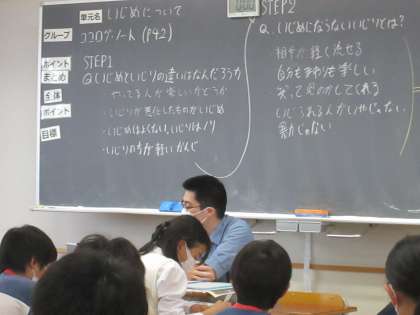 単元名 いじめについて
グループ ココロノート (P42)
ポイント STEP1
まとめ Qいじめといじりの違いはなんだろうか
全体 ・やってる人が楽しいかどうか
ポイント ・いじりが悪化したものがいじめ
・いじめはよくない、いじりはノリ
目標
・いじりの方が軽いかんじ
STEP2
Q. いじめにならないいじりとは?
・相手が軽く流せる
自分もまわりも楽しい
笑って
してくれる
いじられる人が
じゃない